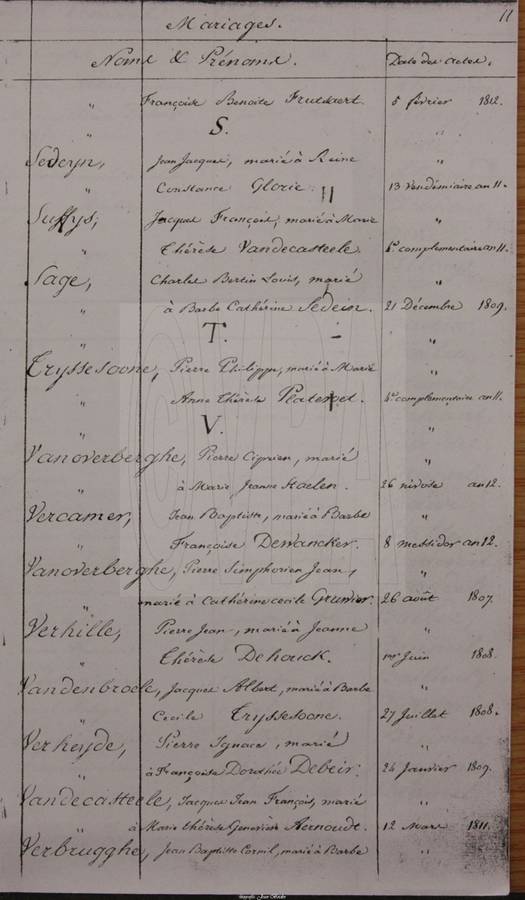 11
Mariages.
Noms & Prénoms. Date des actes.
" Françoise Benoite Frutsaert. 5 février 1812.
" S. "
Sedeyn, Jean Jacques, marié à Reine "
" Constance Glorie. 13 Vendémiaire an 11.
Suffys, Jacques François, marié à Marie "
" Thérèse Vandecasteele. 6e complementaire an 11.
Sage, Charles Bertin Louis, marié "
" à Barbe Cathérine Sedein. 21 Décembre 1809.
" T. "
Tryssesoone, Pierre Philippe, marié à Marie "
" Anne Thérèse Platevoet. complementaire an 11.
" V. "
Vanoverberghe, Pierre Ciprien, marié "
" à Marie Jeanne Staelen. 26 nivose an 12.
Vercamer, Jean Baptiste, marié à Barbe "
" Françoise Dewancker. 8 messidor an 12.
Vanoverberghe, Pierre Simphorien Jean, "
" marié à Cathérine cecile 26 août 1807.
Verhille, Pierre Jean, marié à Jeanne "
" Thérèse Dehouck. 1er Juin 1808.
Vandenbroele, Jacques Albert, marié à Barbe "
" Cecile Tryssesoone. 27 Juillet 1808.
Verheyde, Pierre Ignace, marié "
" à Françoise Dorothée Debeir. 24 Janvier 1809.
Vandecasteele, Jacques Jean François, marié "
" à Marie thérèse Geneviève Aernoudt. 12 Mars 1811.
Verbrügghe, Jean Baptiste Cornil, marié à Barbe "